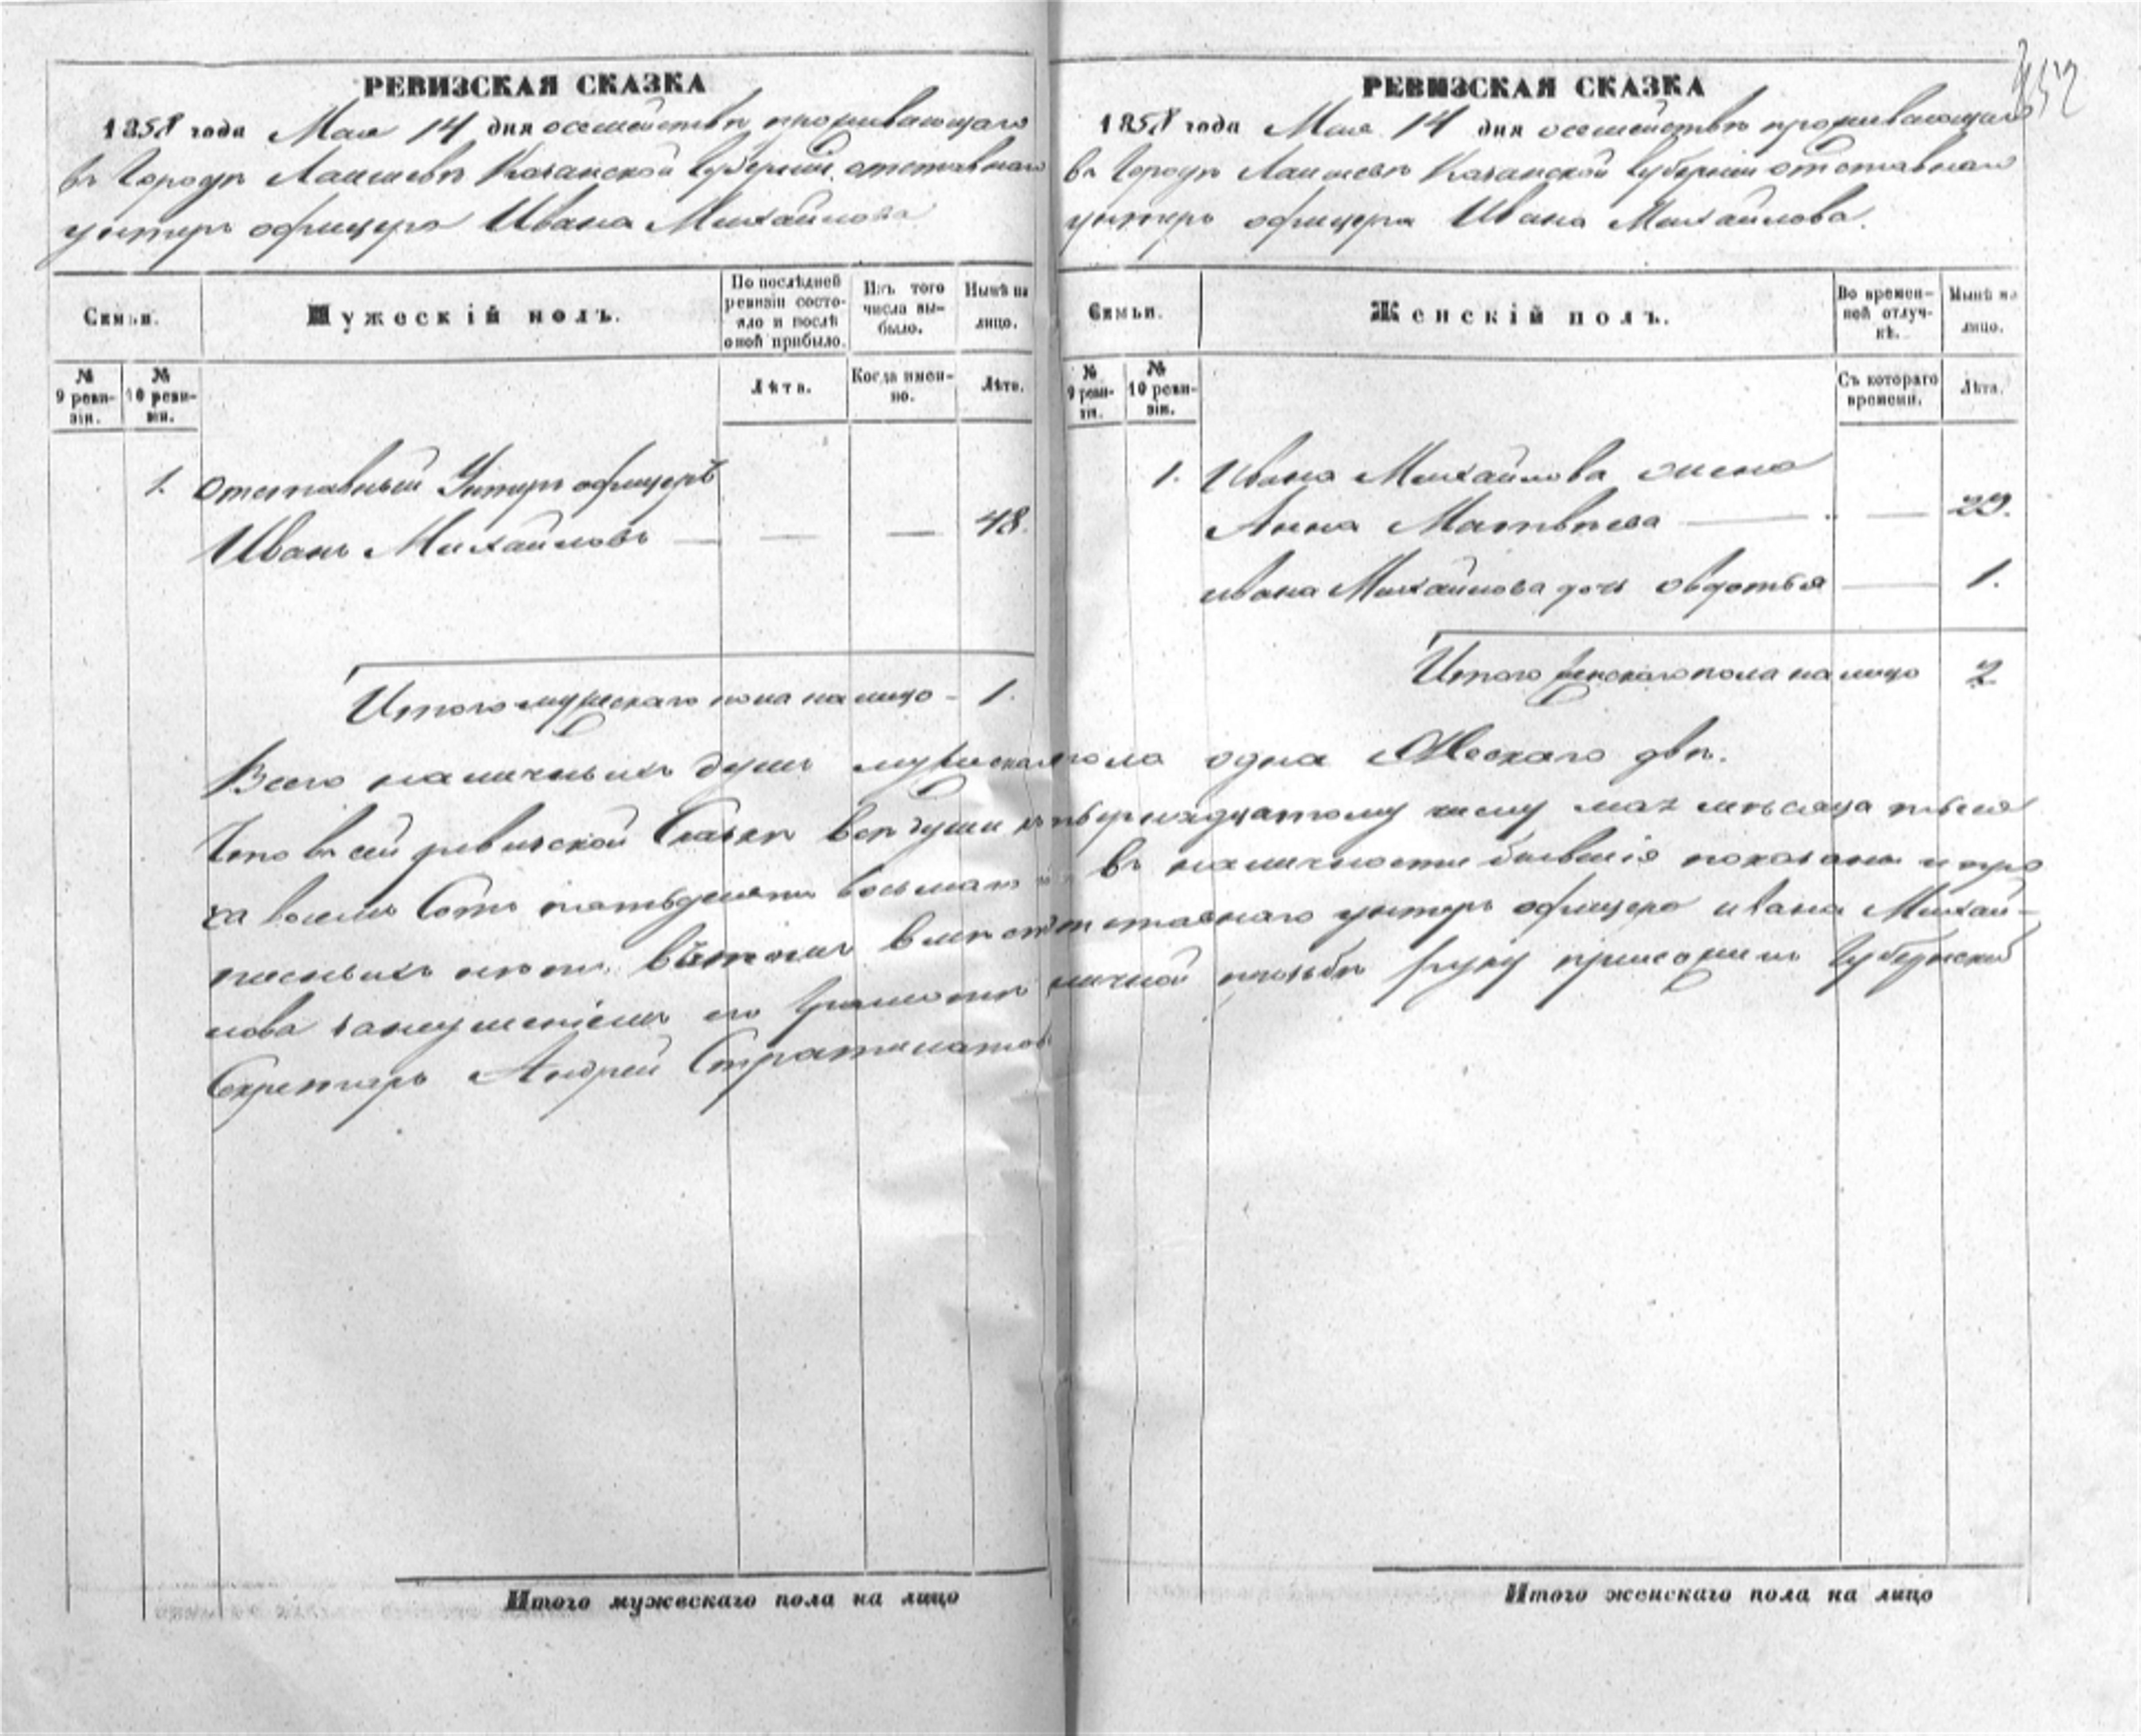 РЕВИЗСКАЯ СКАЗКА
1858 года Мая 14 дня осемействѣ проживающаго
въ Городѣ Лаишевѣ Казанской Губерніи отставнаго
унтеръ офицера Ивана Михайлова
Семьи.
Мужескій полъ.
По послѣдней ревизіи состояло и послѣ оной прибыло.
Изъ того числа выбыло.
Нынѣ на лицо.
№ 9 ревизіи.
№ 10 ревизіи.
Лѣта.
Когда именно.
Лѣта.
1. Отставный Унтеръ офицеръ
Иванъ Михайловъ — — — 48.
Итого мужескаго пола на лицо - 1.
РЕВИЗСКАЯ СКАЗКА
1858 года Мая 14 дня осемействѣ проживающаго
въ Городѣ Лаишевѣ Казанской Губерніи отставнаго
унтеръ офицера Ивана Михайлова.
Семьи.
Женскій полъ.
Во временной отлучкѣ.
Нынѣ на лицо.
№ 9 ревизіи.
№ 10 ревизіи.
Съ котораго времени.
Лѣта.
1. Ивана Михайлова жена
Анна Матвѣева — — 29.
Ивана Михайлова дочь Овдотья — 1.
Итого женскаго пола на лицо 2
Всего наличныхъ душъ мужескаго пола одна Женскаго двѣ.
Что въ сей ревизской Сказкѣ всѣ души къ четырнадцатому числу мая мѣсяца тысеча
восемь Сотъ пятьдесятъ восьмаго въ наличности бывшіе показаны и про
писныхъ нѣтъ, вътомъ вмѣсто отставнаго унтеръ офицера Ивана Михай-
лова занеумѣніемъ его Грамотѣ личной прозьбѣ руку приложилъ Губернскій
Секретарь Андрей Стратилатовъ
Итого мужескаго пола на лицо
Итого женскаго пола на лицо